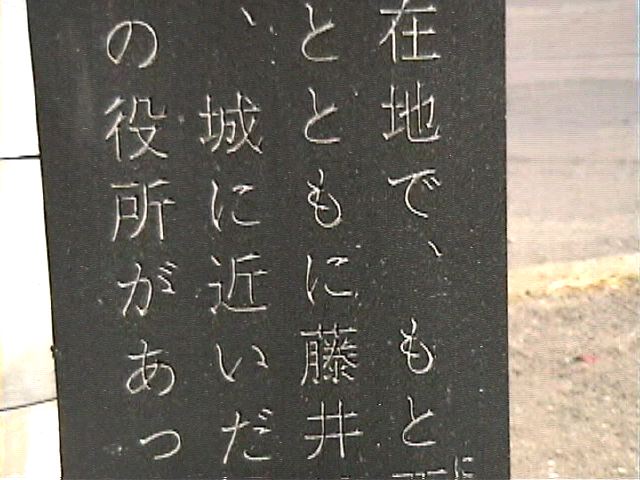 在地で、もと
とともに藤井
、城に近いだ
の役所があっ